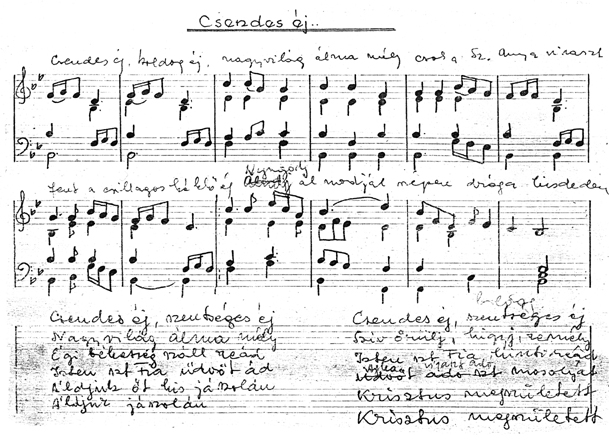 Csendes éj..
Csendes éj, boldog éj, nagyvilág álma mély csak a Sz. Anya virraszt
fent a csillagos kéklő éj álmodját népen drága kisdeden
Csendes éj, szentséges éj
Nagyvilág álma mély
Égi békesség száll reád
Isten szt fia üdvöt ád
Áldjuk őt kis jászolán
Áldjuk jászolán
Csendes éj, szentséges éj
Szív örülj, higyj, remélj
Isten szt fia hinti reád
üdvöt adó szt mosolyát
Krisztus megszületett
Krisztus megszületett